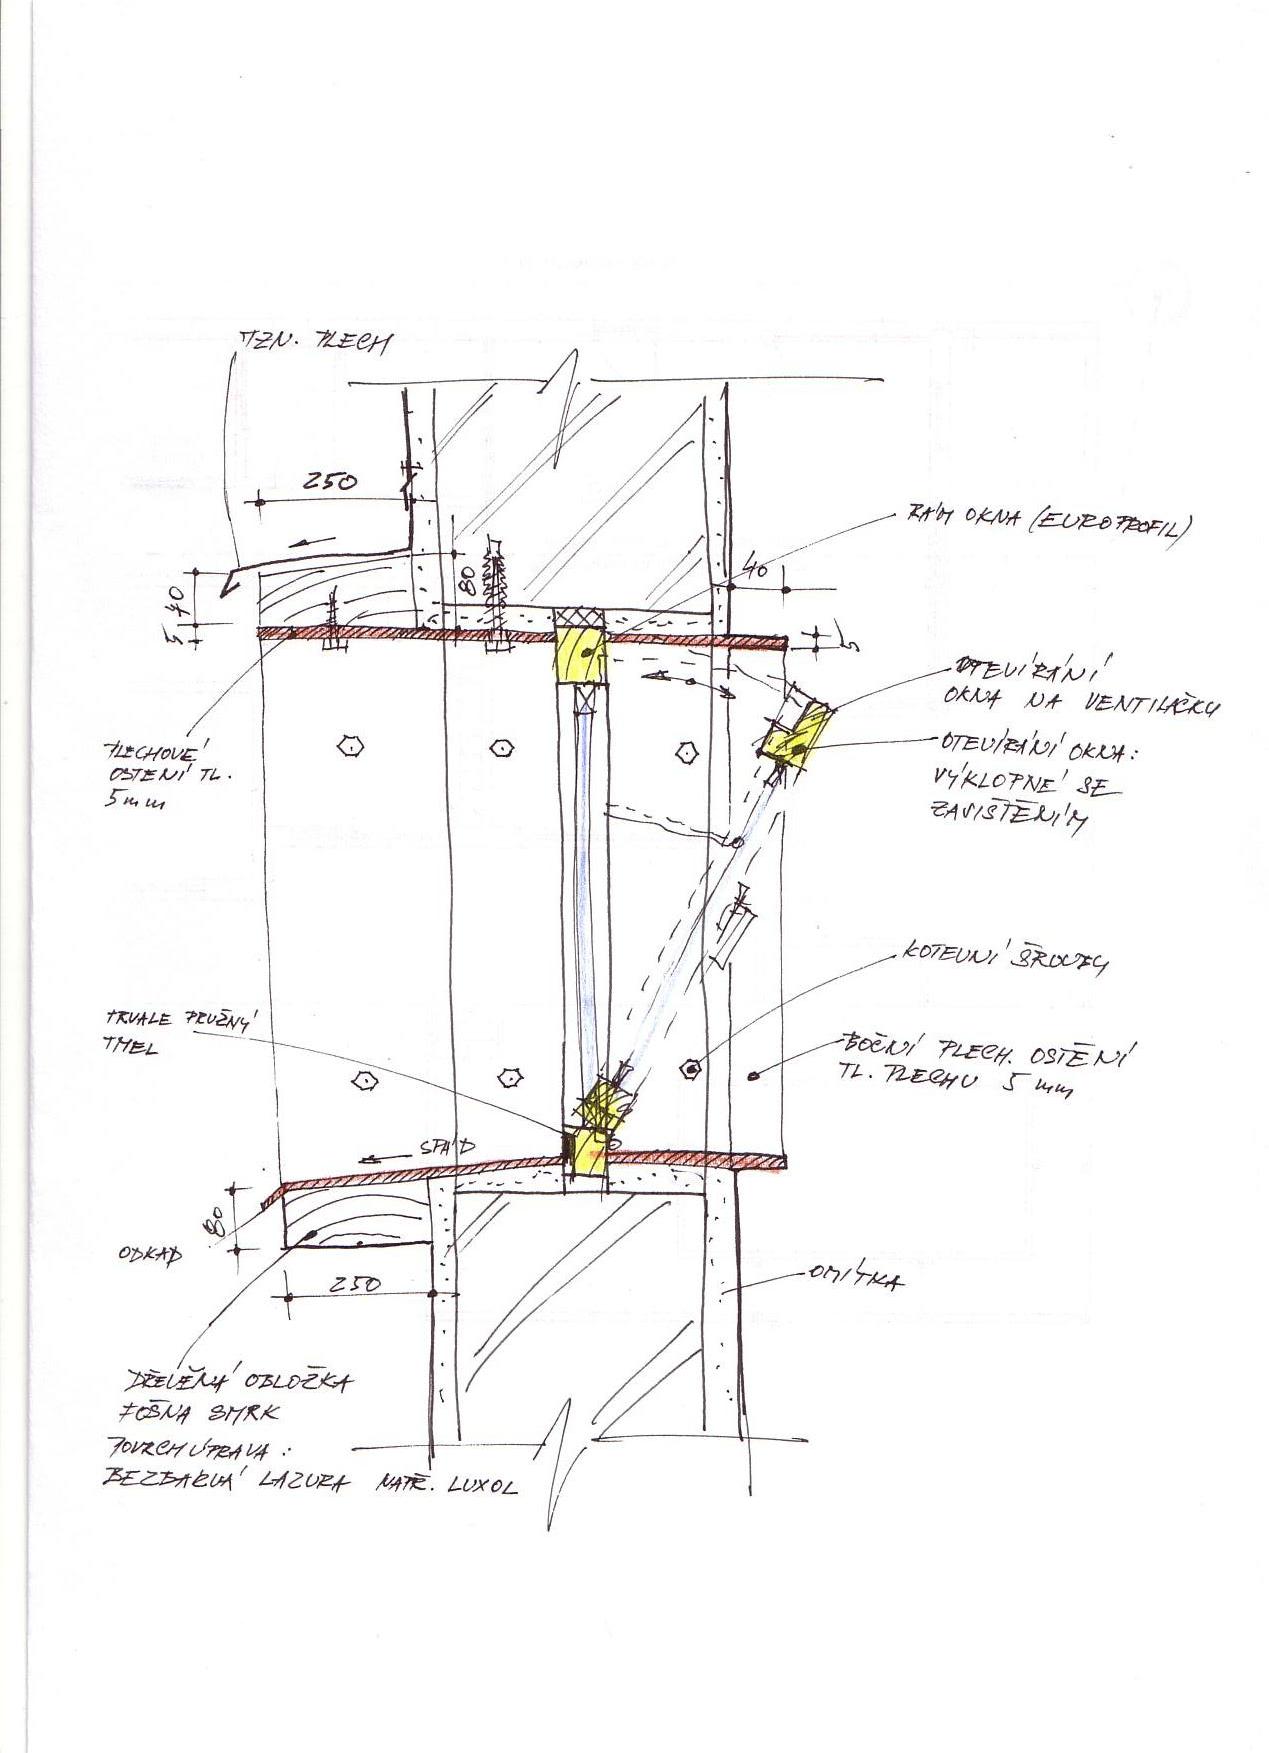 TZN. PLECH
250
RÁM OKNA (EUROPROFIL)
40
80
40
5
5
OTEVÍRÁNÍ
OKNA NA VENTILAČKU
OTEVÍRÁNÍ OKNA:
VÝKLOPNÉ SE
ZAJIŠTĚNÍM
PLECHOVÉ
OSTĚNÍ TL.
5mm
KOTEVNÍ ŠROUBY
TRVALE PRUŽNÝ
TMEL
BOČNÍ PLECH. OSTĚNÍ
TL. PLECHU 5 mm
SPÁD
80
ODKAP
250
OMÍTKA
DŘEVĚNÁ OBLOŽKA
FOŠNA SMRK
POVRCH ÚPRAVA:
BEZBARVÁ LAZURA NAPŘ. LUXOL